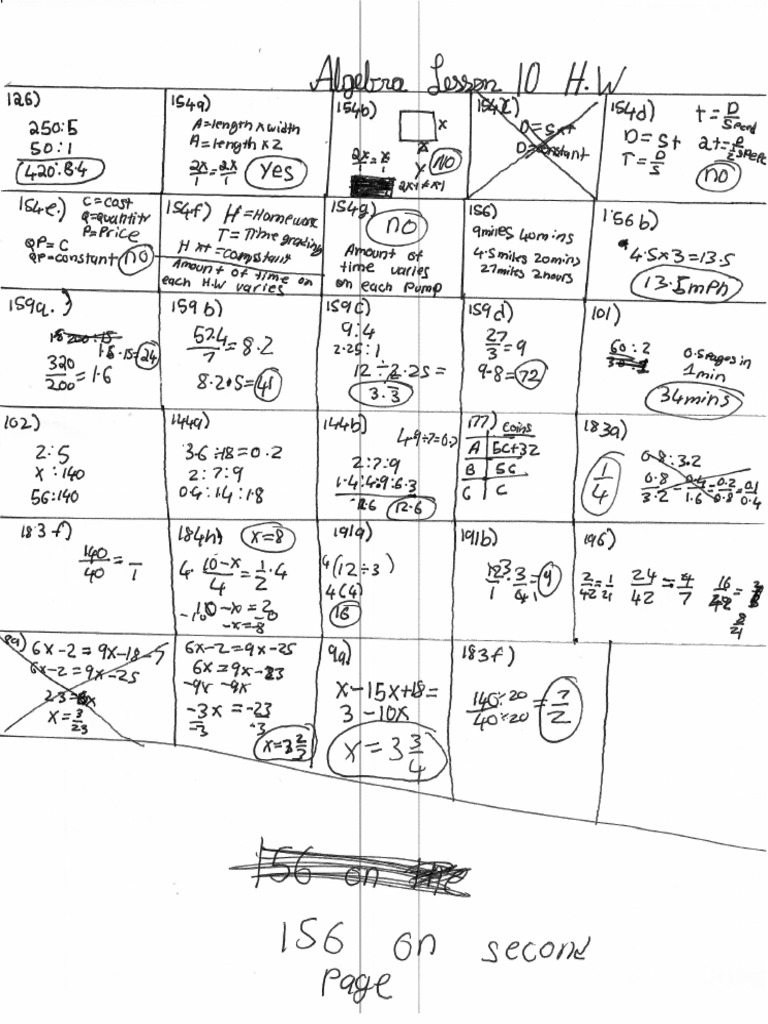 Algebra Lesson 10 H.W
126)
250:5
50:1
420:8.4
154a)
A=length x width
A=length x 2
2x/1 = 2x/1 Yes
154b)
x
x
y
NO
154c)
D=Sxt
D=constant
154d)
D=St
T=D/S
t=D/Speed
no
154e)
C=cost
Q=quantity
P=Price
QP=C
QP=constant no
154f) H=Homework
T=Time grading
H x t=constant
Amount of time on
each H.W varies
154g)
no
Amount of
time varies
on each Pump
156)
9miles 40mins
4.5miles 20mins
27miles 2hours
156b)
4.5x3=13.5
13.5mph
159a.)
1.6·15=24
320/200=1.6
159b)
57.4/7=8.2
8.2·5=41
159c)
9:4
2.25:1
12÷2.25=
3.3
159d)
27/3=9
9·8=72
101)
60:2
0.5pages in
1min
34mins
102)
2:5
x:140
56:140
144a)
3.6÷18=0.2
2:7:9
0.4:1.4:1.8
144b)
4.9÷7=0.7
2:7:9
1.4:4.9:6.3
12.6 12.6
177)
coins
A 5C+32
B 5C
C C
183a)
1/4
0.8:3.2
0.8/3.2 - 0.4/1.6=0.2/0.8=0.1/0.4
183f)
140/40= /1
184h) x=8
4·10-x/4=1/2·4
10-x=2
-x=-8
191a)
4(12÷3)
4(4)
16
191b)
3/1·3/1=9
196)
2/42=1/21 24/42=4/7
8/21
9a) 6x-2=9x-18-7
6x-2=9x-25
x=3/23
6x-2=9x-25
6x=9x-23
-9x -9x
-3x=-23
-3 -3
x=3 2/7
9g)
x-15x+18=
3-10x
x=3 3/4
183f)
140÷20/40÷20=7/2
156 on
156 on second
page